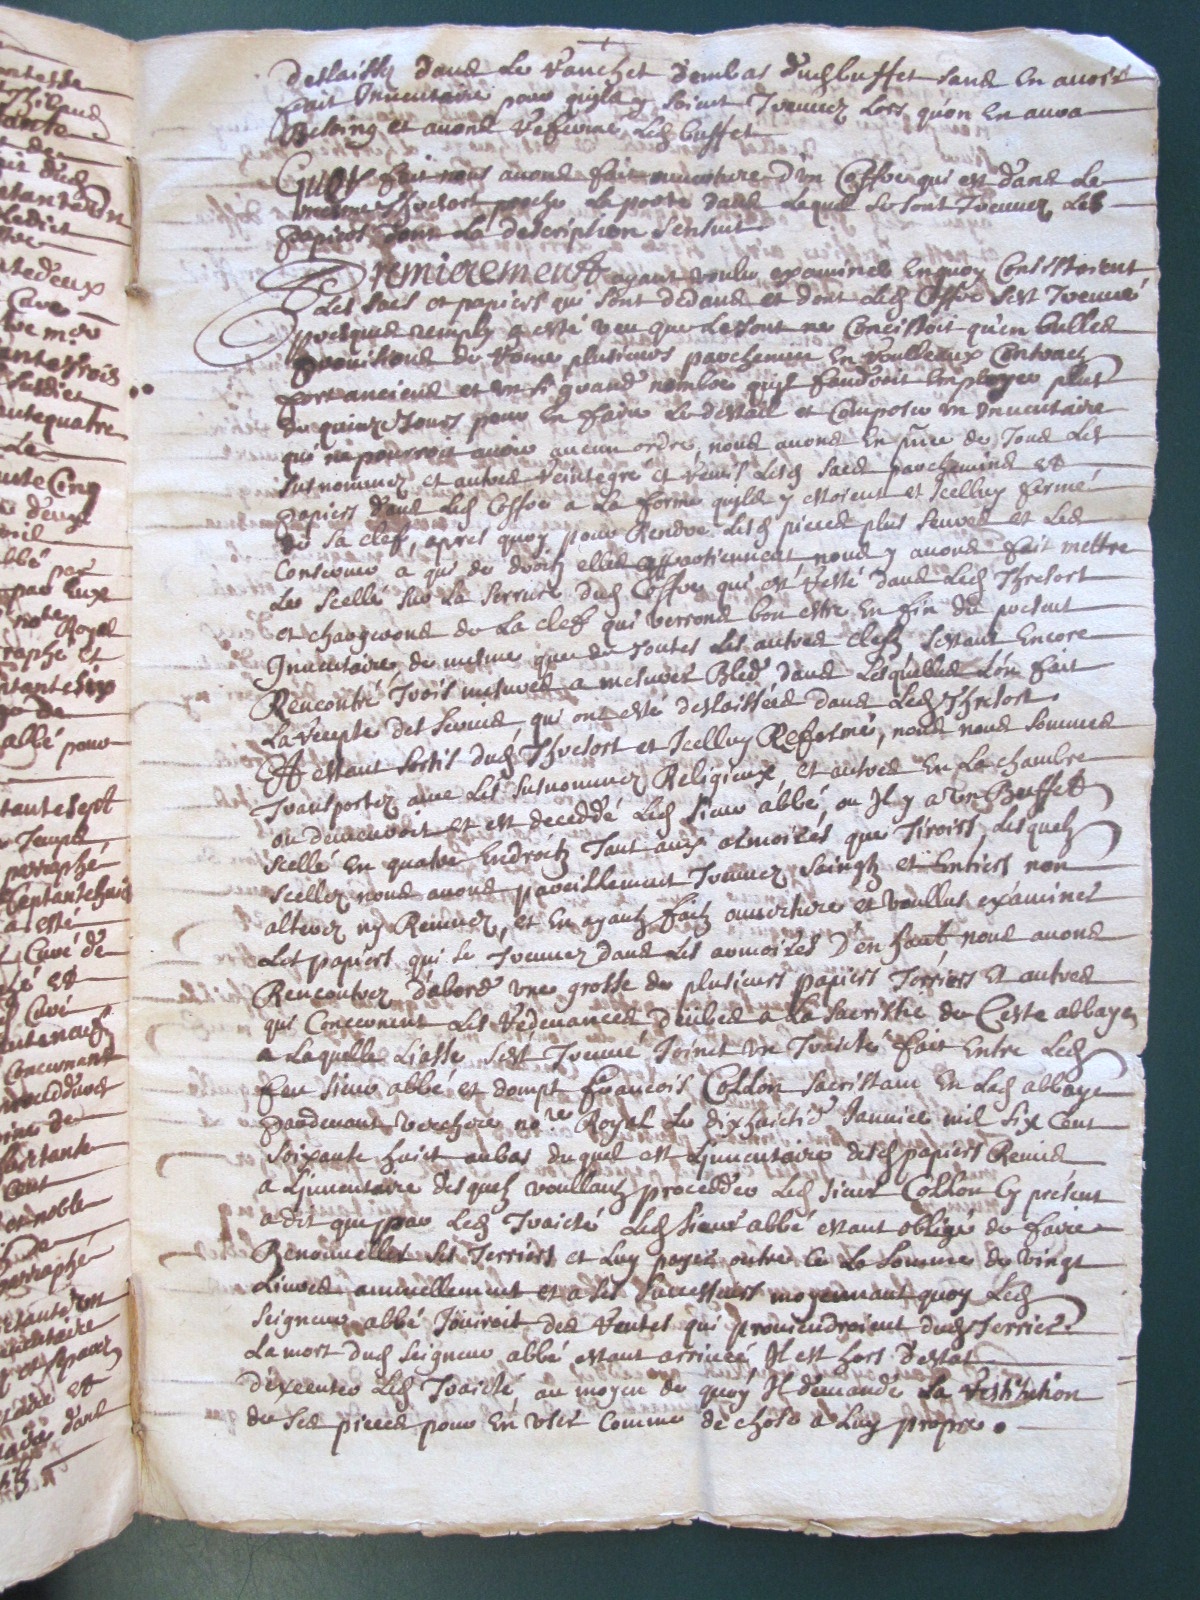 deslaissez dans le ranchet d'embas dudh buffet sans en avoir
fait Inventaire pour quilz y soient Treuuez Lors quon En aura
Besoing et auons refermé Ledh buffet
Quoy fait nous auons fait ouuerture d'un Coffre qui est dans Le
mesme Thresort proche La porte dans Lequel se sont Treuuez Les
papiers dont La description sensuit
Premierement ayant voulu examiner Enquoy Consistoient
Les sacs et papiers qui sont dedans et dont Ledh Coffre sest Treuué
presque remply a esté veu que Le tout ne Concistoit qu'en bulles
prouisions de Rome plusieurs parchemin En roulleaux Contracz
fort anciens et un si grand nombre quil faudroit Employer plus
de quinze Jours pour En faire Le destail et Composer un Inuentaire
qui ne pourroit auoir aucun ordre, nous auons En p̄nce de Tous Les
susnommez et autres reintegré et remis Lesdh sacs parchemins et
papiers dans Ledh Coffre a La forme quilz y estoient et Icelluy fermé
de sa clef, apres quoy pour Rendre Lesdh pieces plus seures et Les
Conseruer a qui de droit elles appartiennent nous y auons fait mettre
Le scellé sur La serrure dudh Coffre qui est resté dans Ledh Thresort
et chargerons de La clef qui verrons bon estre En fin du present
Inuentaire, de mesme que de toutes les autres clefz sestans Encore
Rencontré Trois mesures a mesurer Bled dans Lesquelles L'on fait
La recepte des seruis qui ont esté deslaissées dans Ledh Thresort
Et estant sortis dudh Thresort et Icelluy Refermé, nous nous sommes
Transportez auec Les susnommez Religieux, et autres En La chambre
ou demeuroit et est deceddé Ledh sieur abbé, ou Il y a Un Buffet
scellé En quatre Endroitz Tant aux armoires que Tiroirs Lesquelz
scellez nous auons pareillement Treuuez saingtz et Entiers non
alterez ny Remuez, et En ayant faitz ouuerture et voullus examiner
Les papiers qui se Treuuez dans Les armoires D'en haut nous auons
Rencontrez dabord vne grosse de plusieurs papiers Terriers Et autres
qui Concernent Les Redeuances Deübes a La Sacristie de Ceste abbaye
a Laquelle Liasse sest Treuué Joinct Un Traicté fait Entre Ledh
feu sieur abbé et dompt francois CoLLon sacristain En Ladh abbaye
pardeuant Verchere no.re Royal Le dixhuictié Januier mil six Cent
soixante huict aubas duquel est L'inuentaire desdh papiers Remis
a L'inuentaire desquelz voullantz procedder Ledh sieur CoLLon Cy présent
a dit que par Ledh Traicté Ledh sieur abbé estant obligé de faire
Renouueller ses Terriers et Luy payer outre Ce La somme de vingt
Liures annuellement et a ses successeurs moyennant quoy Ledh
seigneur abbé Joüiroit des Ventes qui prouiendroient dudh Terrier.
La mort dudh seigneur abbé estant arriuée Il est hors d'estat
d'executer Ledh Traicté au moyen de quoy Il demande La restitution
de ses pieces pour En vser Comme de chose a Luy propre.